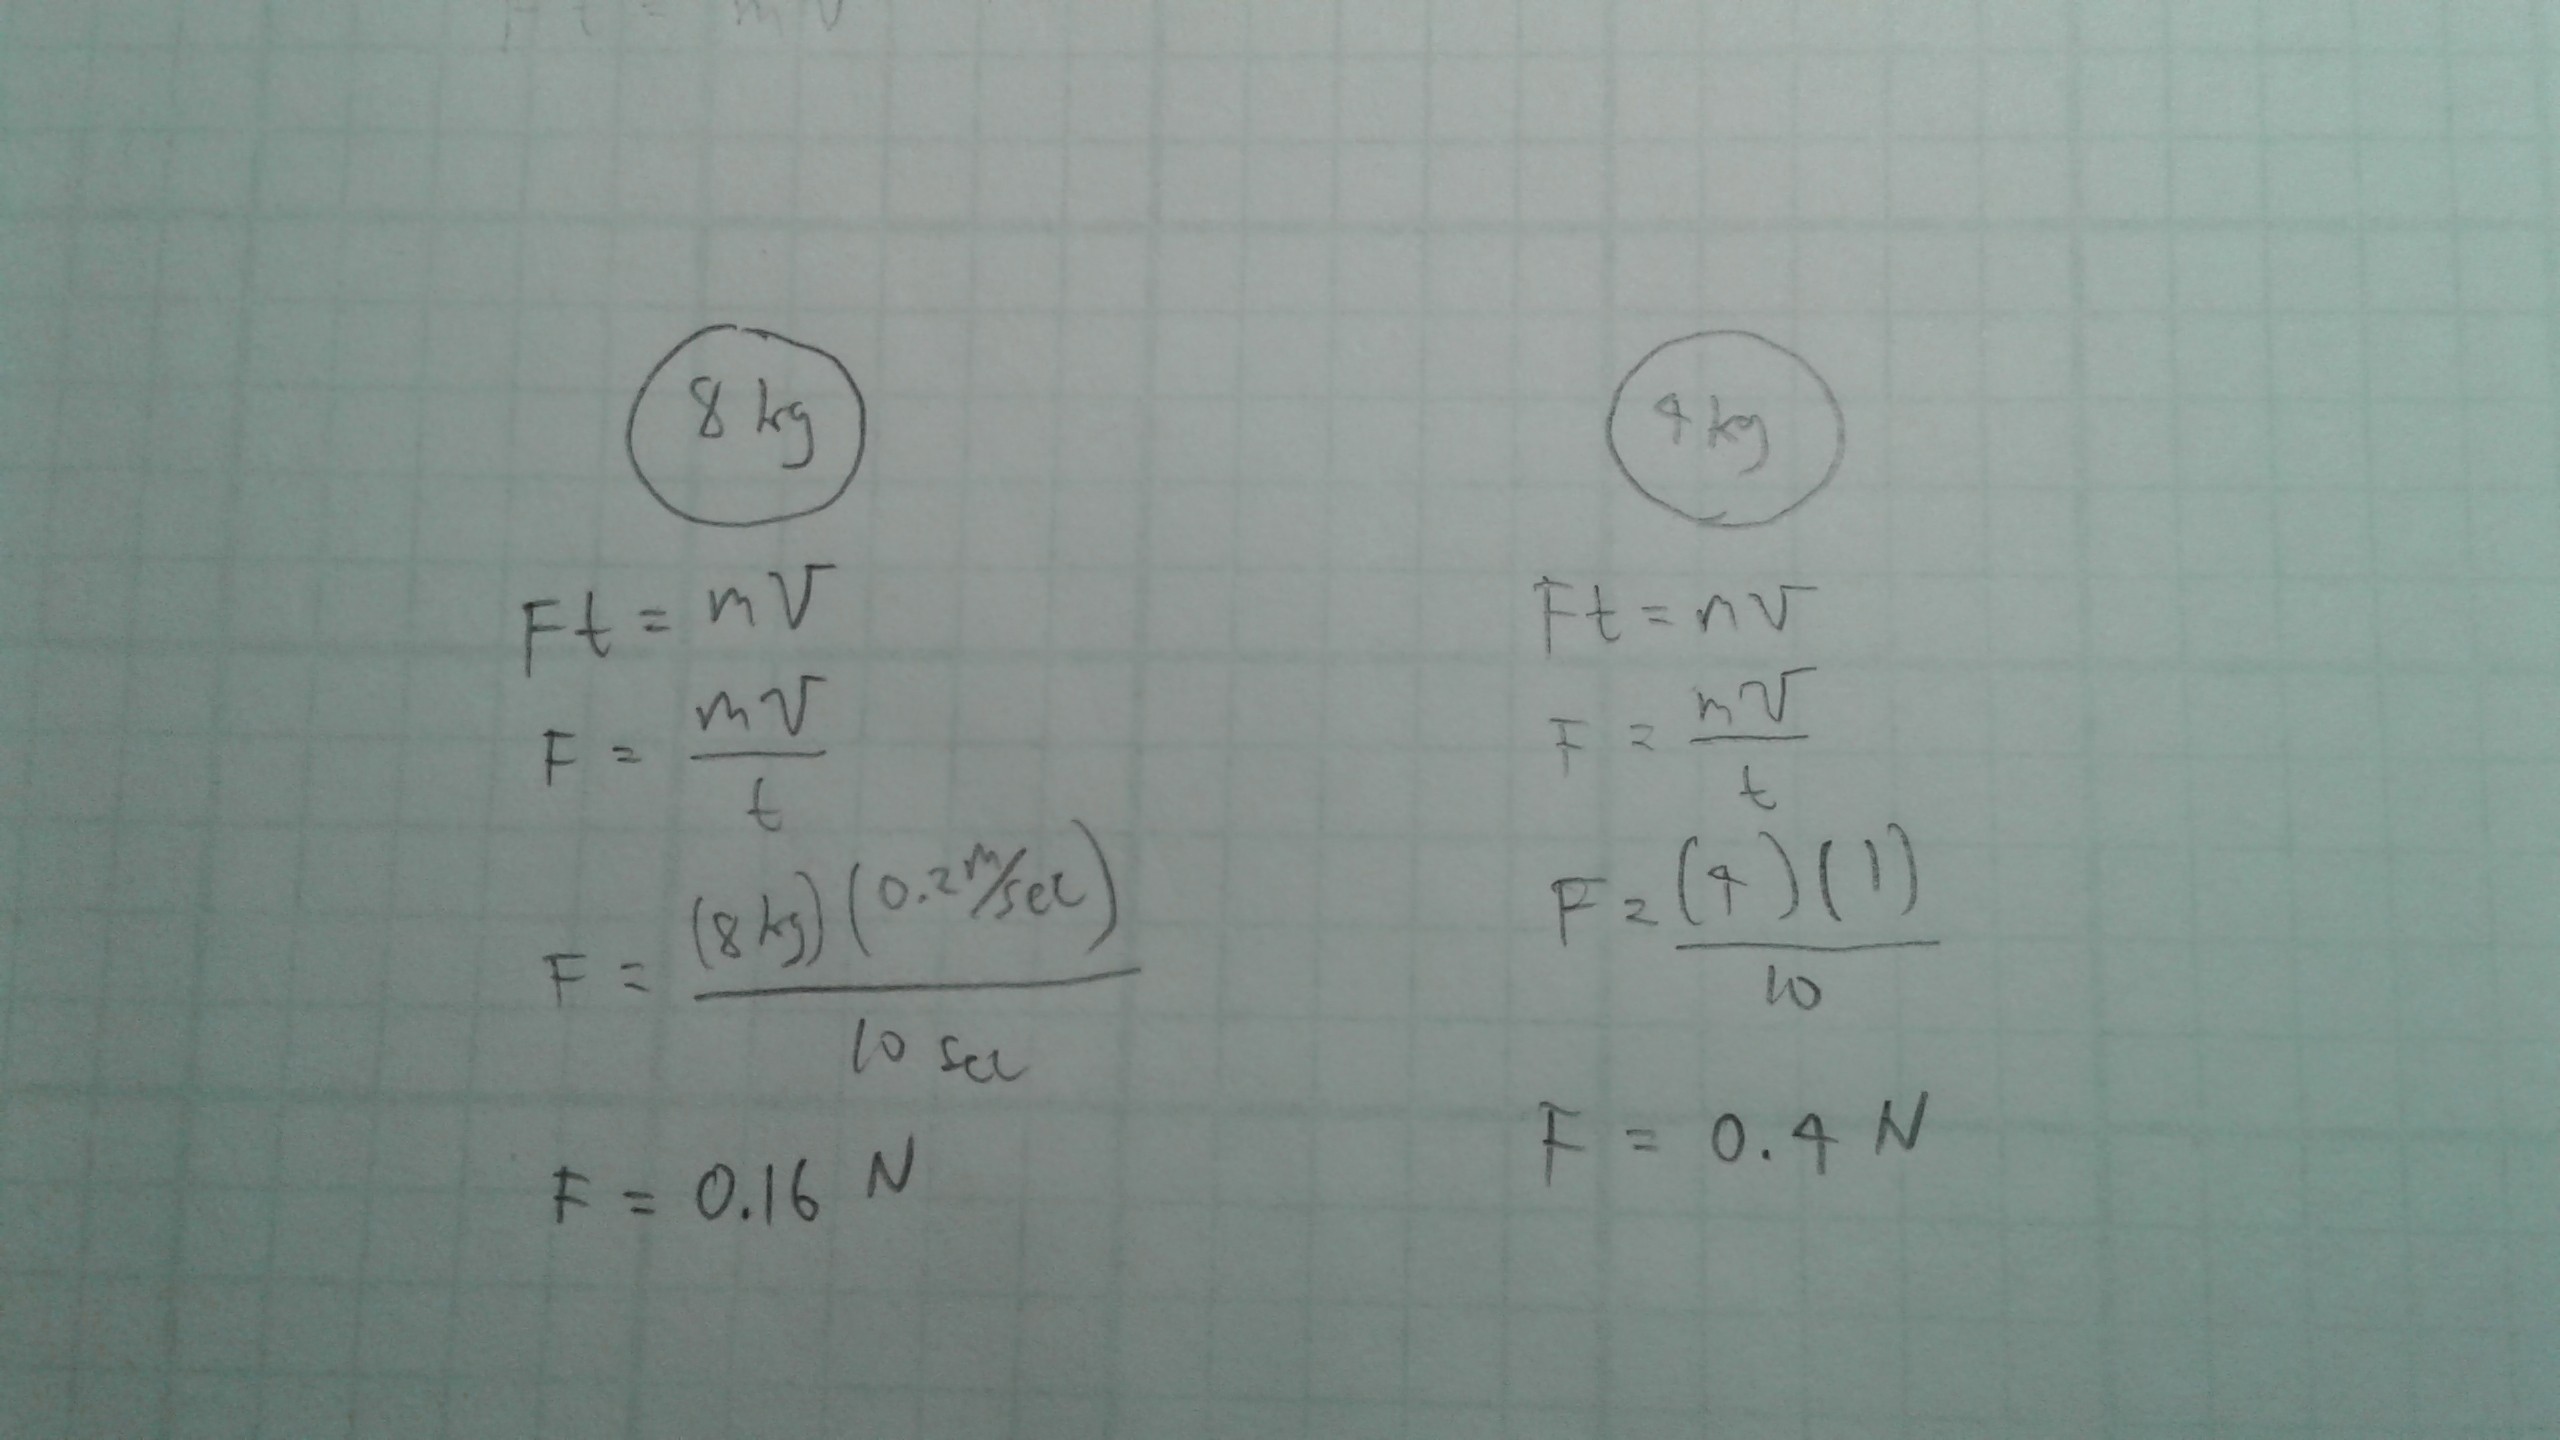 Ft = mV
8 kg
Ft = mV
F = mV
t
F = (8 kg) (0.2 m/sec)
10 sec
F = 0.16 N
4 kg
Ft = mV
F = mV
t
F = (4) (1)
10
F = 0.4 N